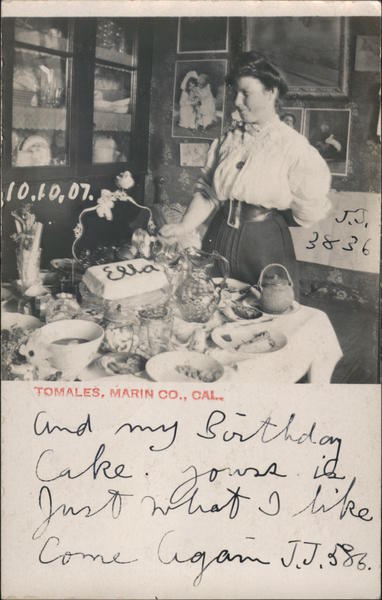 10.10.07.
J.J.
3836
Ella
TOMALES, MARIN CO., CAL.
And my Birthday
Cake. yours is
Just what I like
Come Again J.J.586.